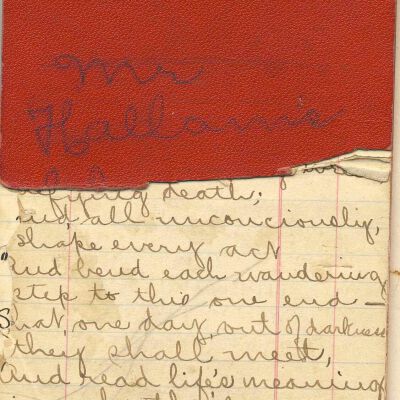 Mr
Hallam's
defying death;
And, all unconciously,
shape every act
And bend each wandering
step to this one end —
That, one day, out of darkness
they shall meet,
And read life's meaning